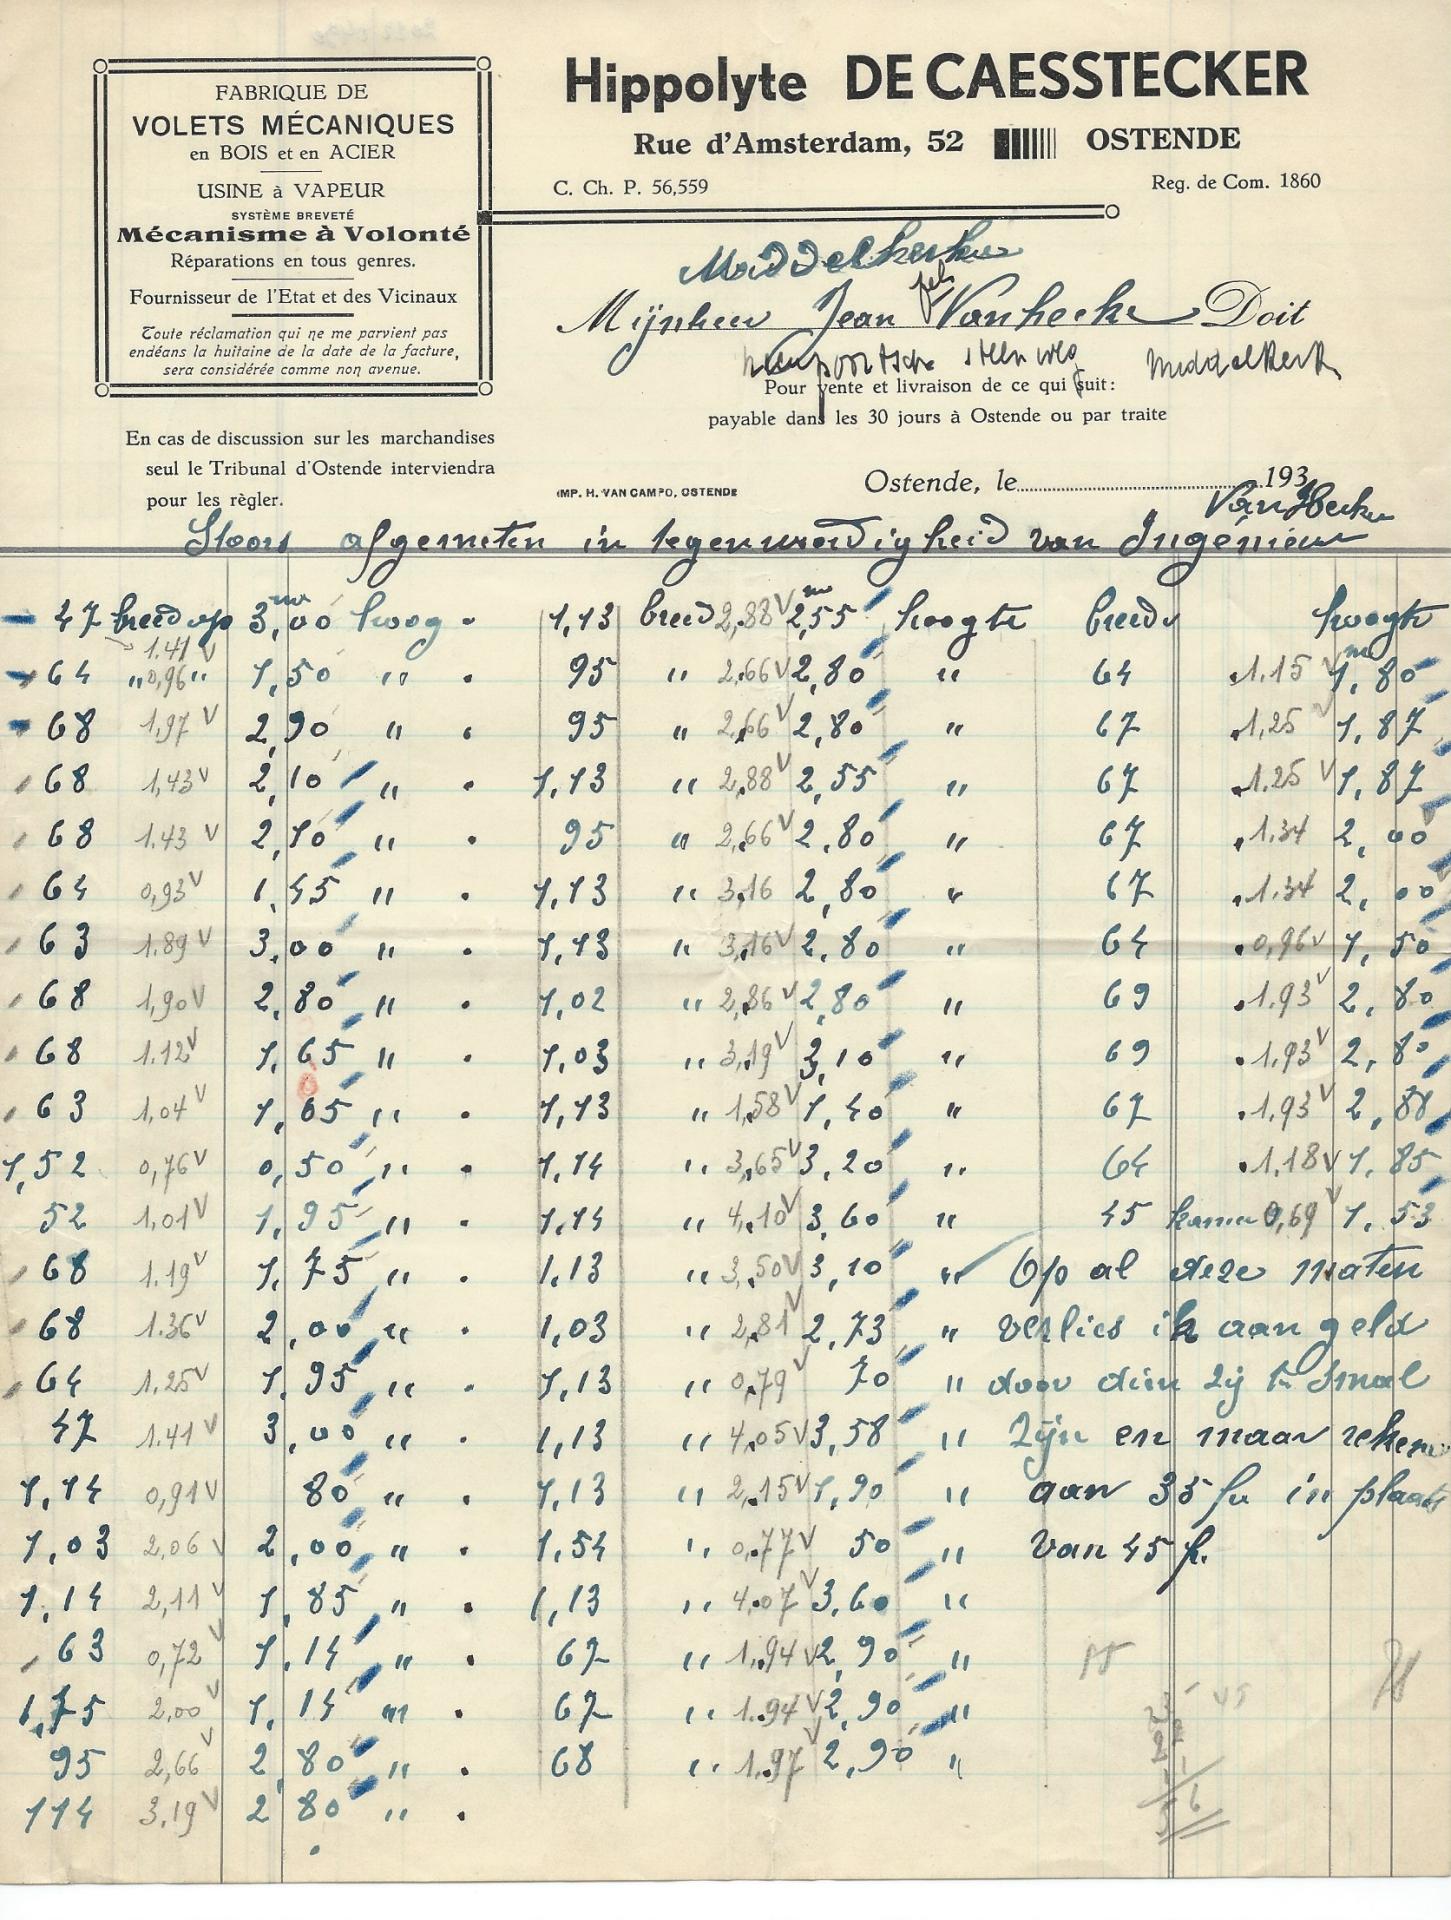 FABRIQUE DE
VOLETS MÉCANIQUES
en BOIS et en ACIER
USINE à VAPEUR
SYSTÈME BREVETÉ
Mécanisme à Volonté
Réparations en tous genres.
Fournisseur de l'Etat et des Vicinaux
Toute réclamation qui ne me parvient pas
endéans la huitaine de la date de la facture,
sera considérée comme non avenue.
En cas de discussion sur les marchandises
seul le Tribunal d'Ostende interviendra
pour les règler.
Hippolyte DE CAESSTECKER
Rue d'Amsterdam, 52 OSTENDE
C. Ch. P. 56,559 Reg. de Com. 1860
Middelkerke
Mijnheer Jean fils Vanhecke Doit
nieuwpoortsche steenweg Middelkerke
Pour vente et livraison de ce qui suit:
payable dans les 30 jours à Ostende ou par traite
IMP. H. VAN CAMPO, OSTENDE
Ostende, le 193
Van Hecke
Stoors afgemeten in tegenwoordigheid van Ingénieur
47 breed op 1.41 V 3,00 hoog . 1,13 breed 2,88 V 2,55 hoogte breed hoogte
64 " 0,96 " 1,50 " . 95 " 2,66 V 2,80 " 64 .1.15 V 1,80
68 1,97 V 2,90 " . 95 " 2,66 V 2,80 " 67 .1,25 V 1,87
68 1,43 V 2,10 " . 1,13 " 2,88 V 2,55 " 67 .1.25 V 1,87
68 1.43 V 2,10 " . 95 " 2,66 V 2,80 " 67 .1.34 2,00
64 0,93 V 1,45 " . 1,13 " 3,16 2,80 " 67 .1.34 2,00
63 1,89 V 3,00 " . 1,13 " 3,16 V 2,80 " 64 .0,96 V 1,50
68 1,90 V 2,80 " . 1,02 " 2,86 V 2,80 " 69 .1.93 V 2,80
68 1.12 V 1,65 " . 1,03 " 3,19 V 3,10 " 69 .1,93 V 2,80
63 1,04 V 1,65 " . 1,13 " 1,58 V 1,40 " 67 .1,93 V 2,88
1,52 0,76 V 0,50 " . 1,14 " 3,65 V 3,20 " 64 .1,18 V 1,85
52 1,01 V 1,95 " . 1,14 " 4,10 V 3,60 " 45 0,69 V 1,53
68 1.19 V 1,75 " . 1,13 " 3,50 V 3,10 " Op al deze maten
68 1.36 V 2,00 " . 1,03 " 2,81 V 2,73 " verlies ik aan geld
64 1.25 V 1,95 " . 1,13 " 0,79 V 70 " door dien zij te smal
47 1.41 V 3,00 " . 1,13 " 4,05 V 3,58 " zijn en maar reken
1,14 0,91 V 80 " . 1,13 " 2,15 V 1,90 " aan 35 fr in plaats
1,03 2,06 V 2,00 " . 1,54 " 0,77 V 50 " van 45 fr.
1,14 2,11 V 1,85 " . 1,13 " 4,07 V 3,60 "
63 0,72 V 1,14 " . 67 " 1.94 V 2,90 "
1,75 2,00 V 1,14 " . 67 " 1.94 V 2,90 "
95 2,66 V 2,80 " . 68 " 1.97 V 2,90 "
114 3,19 V 2,80 " .